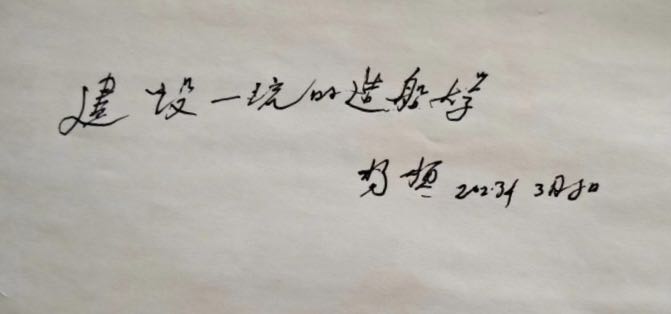 建设一流的造船学
杨槱 2023年3月8日